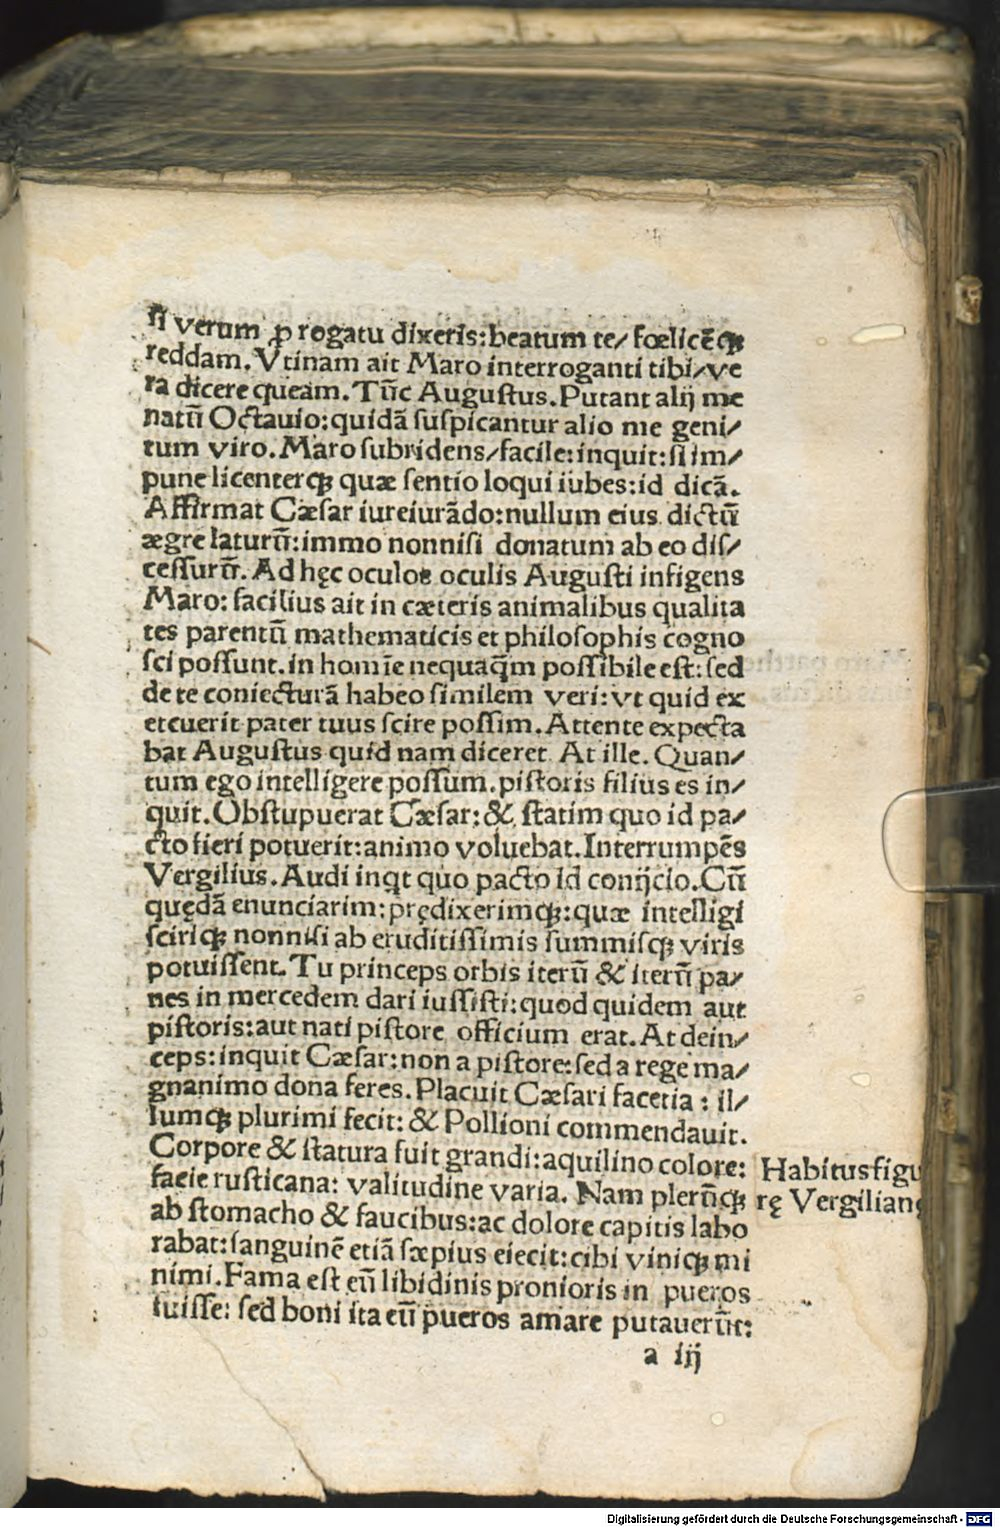 si verum ꝓ rogatu dixeris:beatum te/ fœlicē&#xA757;
reddam. Vtinam ait Maro interroganti tibi/ve
ra dicere queam. Tūc Augustus. Putant alij me
natū Octauio:quidã suspicantur alio me geni/
tum viro. Maro subridens/facile:inquit:si im/
pune licenterqꝫ quæ sentio loqui iubes:id dicã.
Affirmat Cæsar iureiurãdo:nullum eius dictū
ægre laturū:immo nonnisi donatum ab eo dis/
cessurū. Ad hęc oculos oculis Augusti infigens
Maro: facilius ait in cæteris animalibus qualita
tes parentū mathematicis et philosophis cogno
sci possunt. in homīe nequaq̃m possibile est: sed
de te coniecturã habeo similem veri: vt quid ex
ercuerit pater tuus scire possim. Attente expecta
bat Augustus quid nam diceret. At ille. Quan/
tum ego intelligere possum. pistoris filius es in/
quit. Obstupuerat Cæsar: & statim quo id pa/
cto fieri potuerit:animo voluebat. Interrumpēs
Vergilius. Audi inqt quo pacto id conijcio. Cū
quędã enunciarim: prędixerimqꝫ: quæ intelligi
sciriqꝫ nonnisi ab eruditissimis summisqꝫ viris
potuissent. Tu princeps orbis iterū & iterū pa/
nes in mercedem dari iussisti: quod quidem aut
pistoris: aut nati pistore officium erat. At dein/
ceps: inquit Cæsar: non a pistore: sed a rege ma/
gnanimo dona feres. Placuit Cæsari facetia: il/
lumqꝫ plurimi fecit: & Pollioni commendauit.
Corpore & statura fuit grandi: aquilino colore:
facie rusticana: valitudine varia. Nam plerūqꝫ
ab stomacho & faucibus: ac dolore capitis labo
rabat: sanguinē etiã sæpius eiecit: cibi viniqꝫ mi
nimi. Fama est eū libidinis pronioris in pueros
fuisse: sed boni ita eū pueros amare putauerūt:
a iij
Habitus figu
rę Vergilianę
Digitalisierung gefördert durch die Deutsche Forschungsgemeinschaft - DFG